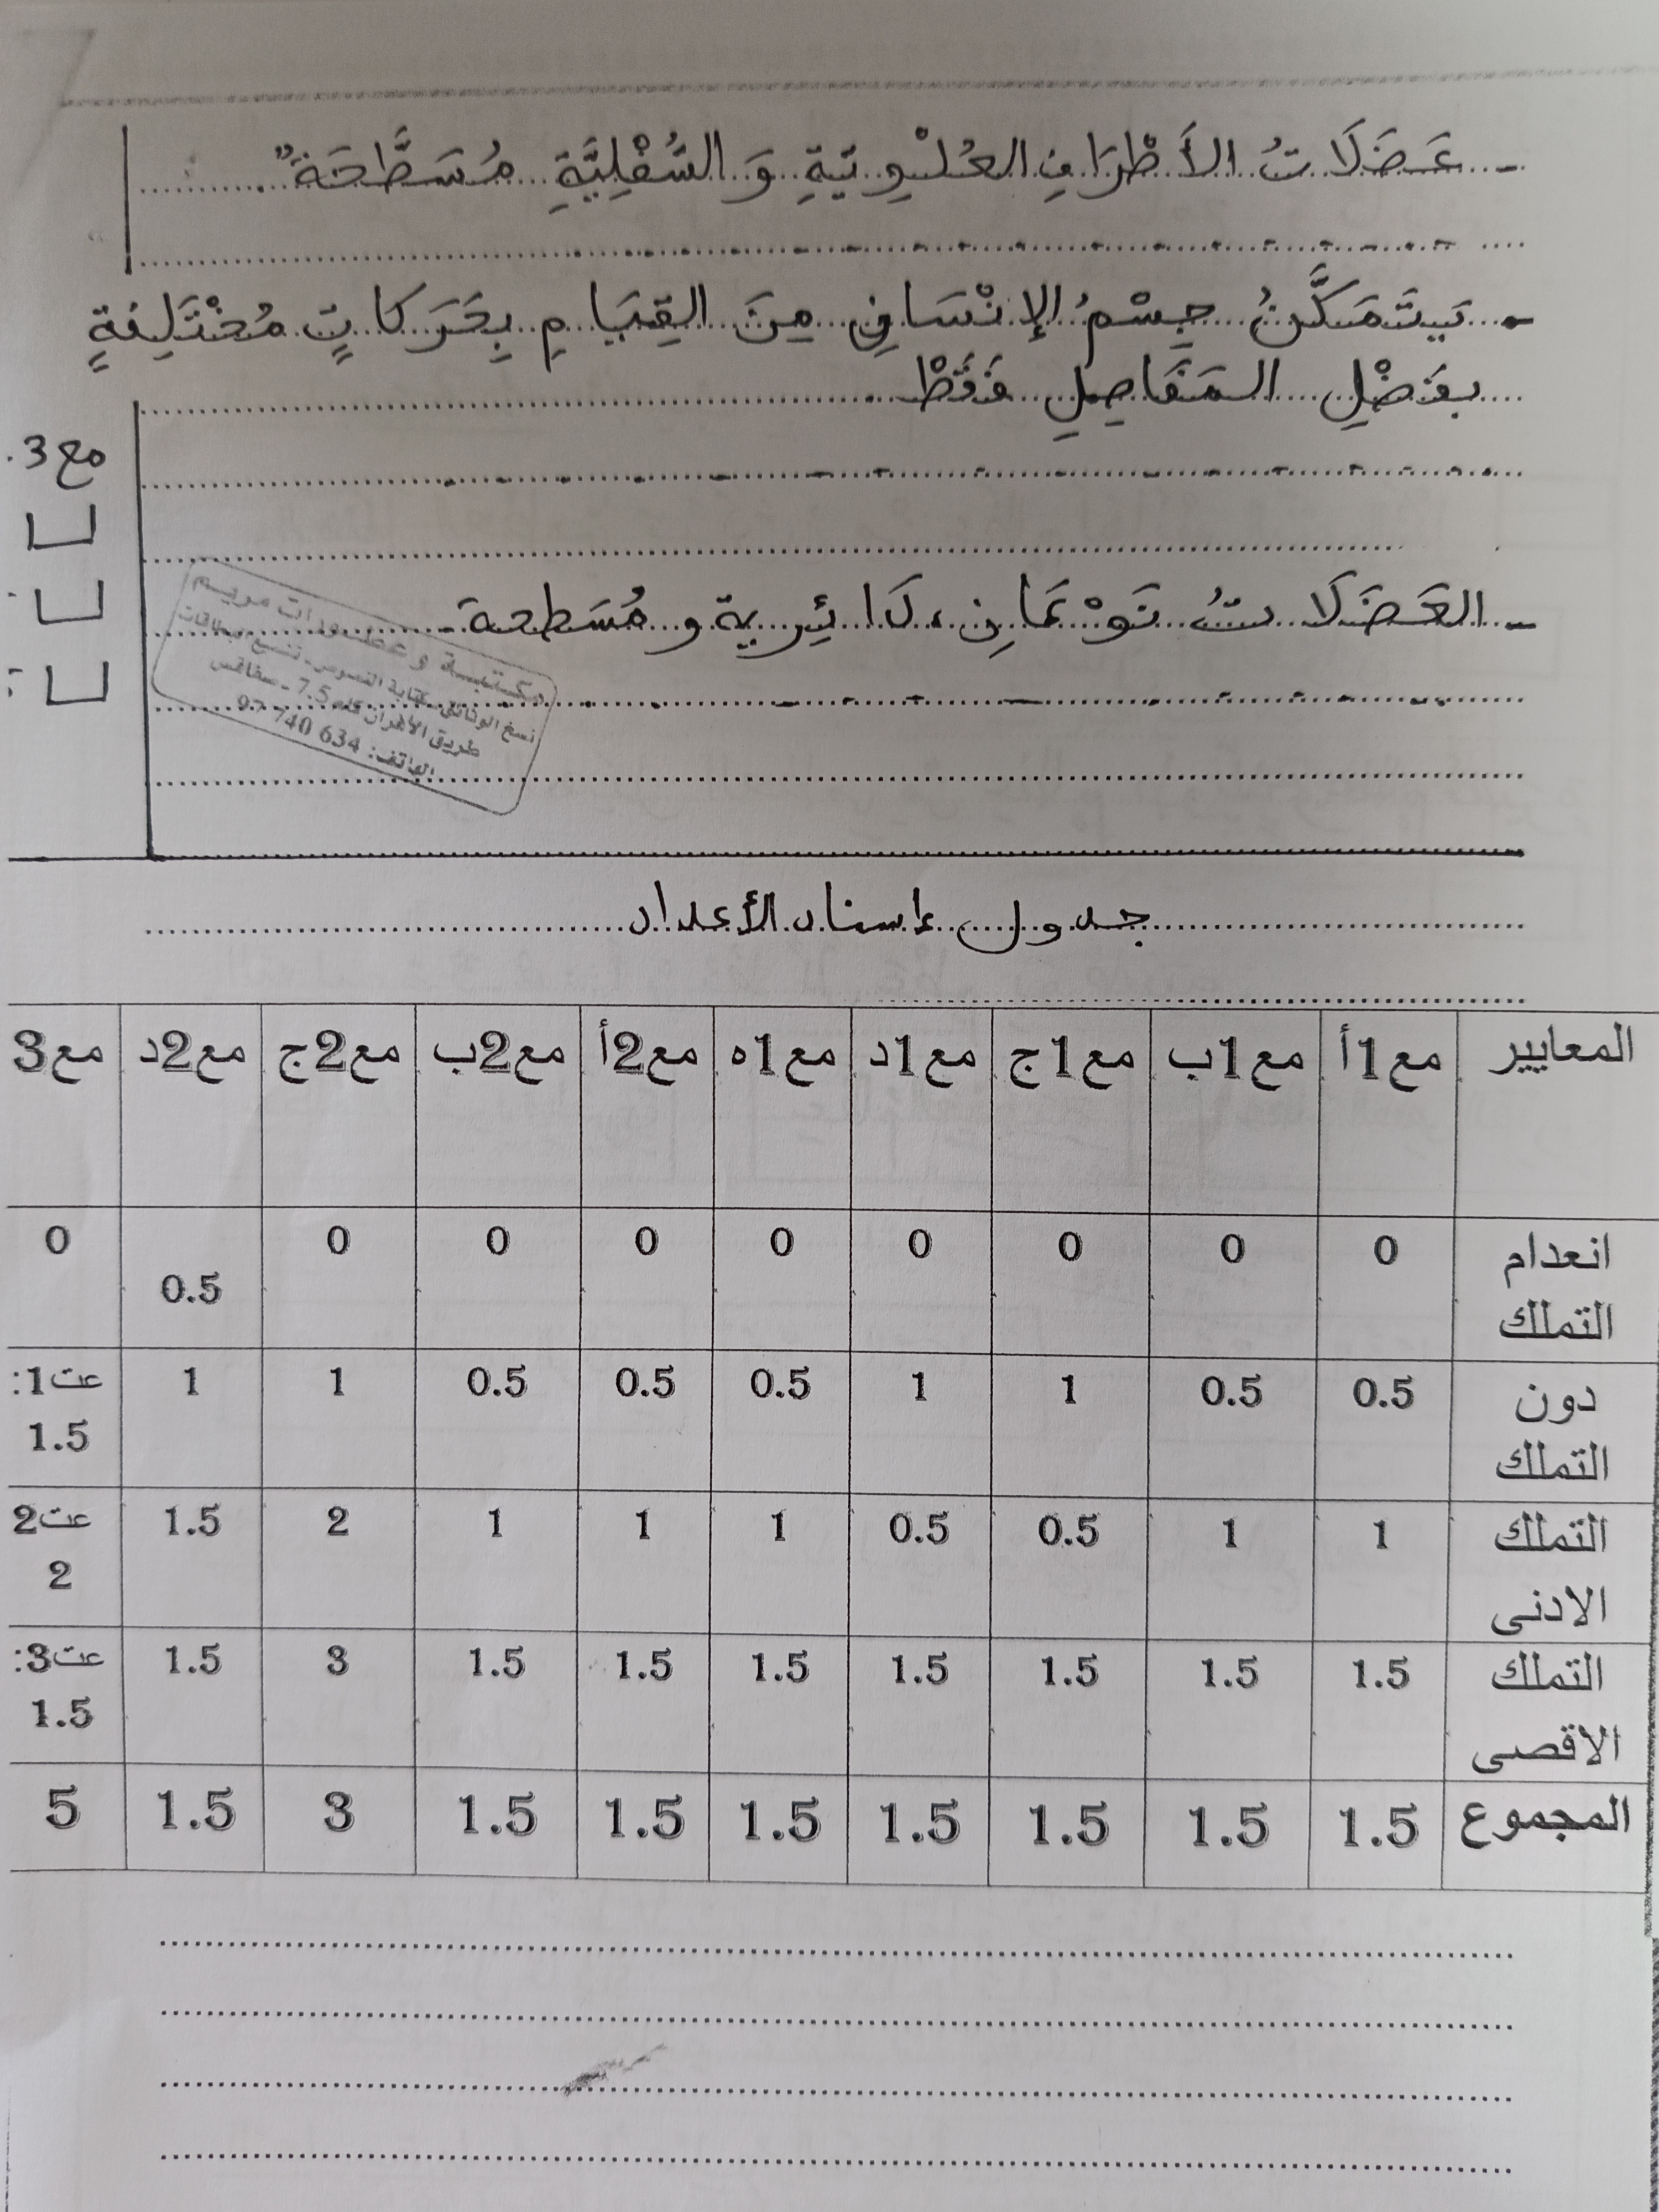 - عَضَلَاتُ الأَطْرَافِ العُلْوِيَّةِ وَ السُّفْلِيَّةِ مُسَطَّحَةٌ
- يَتَمَكَّنُ جِسْمُ الإِنْسَانِ مِنَ القِيَامِ بِحَرَكَاتٍ مُخْتَلِفَةٍ
بِفَضْلِ المَفَاصِلِ فَقَطْ
مع3
- العَضَلَاتُ نَوْعَانِ، دَائِرية و مُسَطحة -
مكتبة و عطورات مريم
نسخ الوثائق - كتابة النصوص -
طريق الأفران كلم 7.5 - صفاقس
الهاتف: 634 740 97
جدول إسناد الأعداد
المعايير مع1أ مع1ب مع1ج مع1د مع1ه مع2أ مع2ب مع2ج مع2د مع3
انعدام التملك 0 0 0 0 0 0 0 0 0.5 0
دون التملك 0.5 0.5 1 1 0.5 0.5 0.5 1 1 عت1: 1.5
التملك الادنى 1 1 0.5 0.5 1 1 1 2 1.5 عت2 2
التملك الاقصى 1.5 1.5 1.5 1.5 1.5 1.5 1.5 3 1.5 عت3: 1.5
المجموع 1.5 1.5 1.5 1.5 1.5 1.5 1.5 3 1.5 5